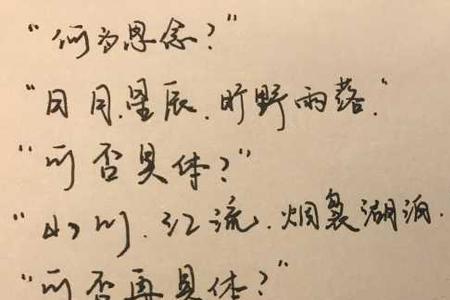 “何为思念？”
“日月.星辰.旷野雨落.”
“可否具体？”
“山川.江流.烟袅湖泊.
“可否再具体？”